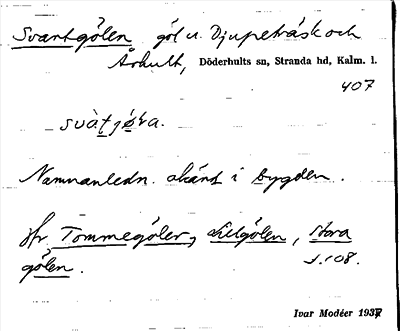 Svartgölen göl u. Djupeträsk och
Århult, Döderhults sn, Stranda hd, Kalm. l.
407
svàtjø̀ra.
Namnanledn. okänd i bygden.
Jfr Tommegöler, Lillgölen, Stora
gölen. s. 108.
Ivar Modéer 1937